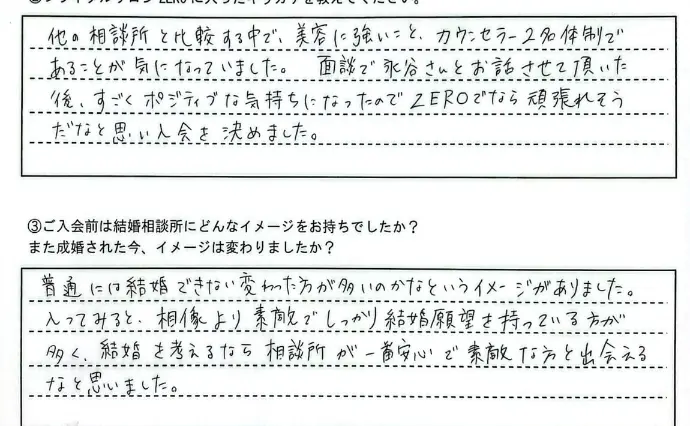 ZEROに入ったキッカケを教えてください。
他の相談所と比較する中で、美容に強いこと、カウンセラー2名体制で
あることが気になっていました。 面談で永谷さんとお話させて頂いた
後、すごくポジティブな気持ちになったのでZEROでなら頑張れそう
だなと思い入会を決めました。
③ご入会前は結婚相談所にどんなイメージをお持ちでしたか？
また成婚された今、イメージは変わりましたか？
普通には結婚できない変わった方が多いのかなというイメージがありました。
入ってみると、相像より素敵でしっかり結婚願望を持っている方が
多く、結婚を考えるなら相談所が一番安心で素敵な方と出会える
なと思いました。